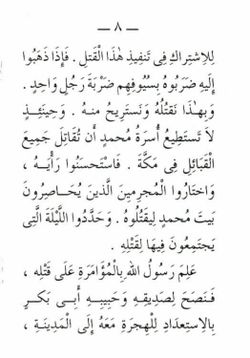 — ٨ —
لِلاِشْتِراكِ فِى تَنفِيذِ هٰذا القَتلِ . فَإذَا ذَهَبُوا
إلَيهِ ضَرَبُوهُ بِسُيُوفِهِم ضَرْبَةَ رَجُلٍ وَاحِدٍ .
وَبِهٰذَا نَقتُلُهُ وَنَستَرِيحُ منهُ . وَحِينَئِذٍ
لاَ تَستَطِيعُ أُسرَةُ مُحمدٍ أن تُقَاتِلَ جَمِيعَ
القَبَائِلِ فِى مَكَّةَ . فَاستَحسَنُوا رَأيَهُ ،
وَاختَارُوا المُجرِمينَ الَّذينَ يُحَاصِرُونَ
بَيتَ مُحمدٍ لِيَقتُلُوهُ . وَحَدَّدُوا اللَّيلَةَ الَّتِى
يَجتَمِعُونَ فِيهَا لِقَتْلِهِ .
عَلِمَ رَسُولُ اللهِ بِالْمُؤَامَرَةِ عَلَى قَتْلِهِ ،
فَنَصَحَ لِصَدِيقِهِ وَحَبِيبِهِ أَبِى بَكرٍ
بِالاِستِعدَادِ لِلْهِجرَةِ مَعَهُ إلَى المَدِينَةِ ،